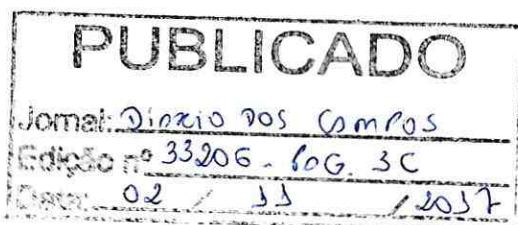 PUBLICADO
Jornal: Diário dos Campos
Edição nº 33206 - PÁG. 3C
Data: 02 / 11 / 2017